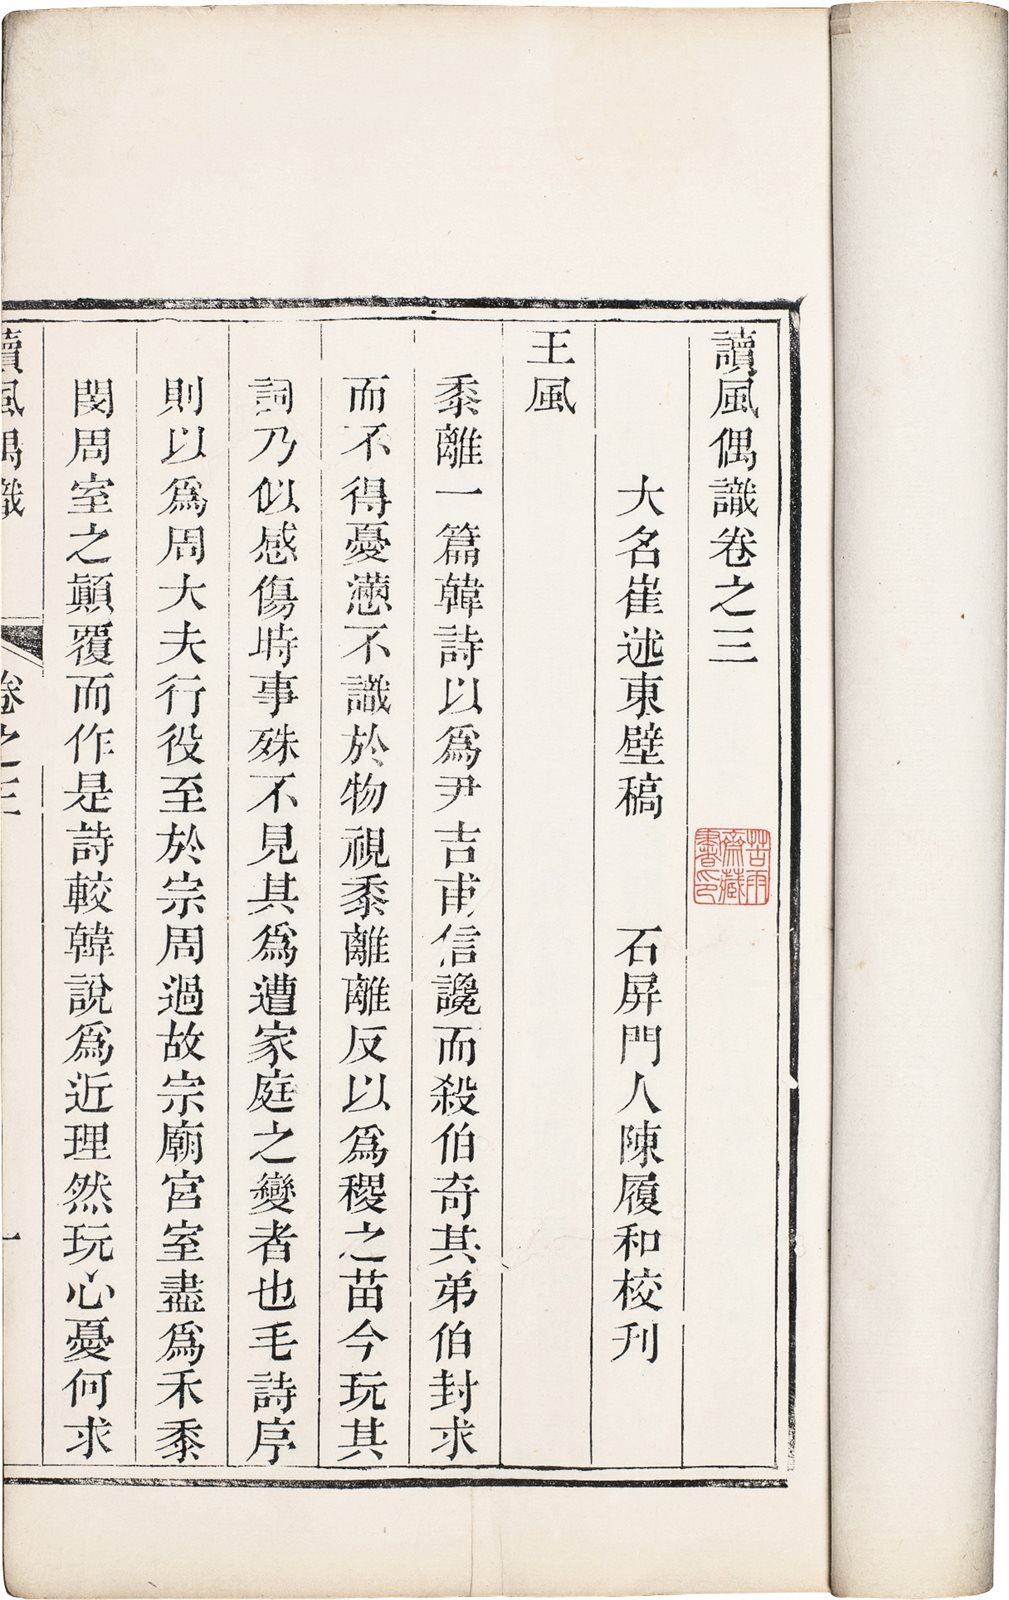 讀風偶識卷之三
苦雨齋藏書印
大名崔述東壁稿 石屏門人陳履和校刊
王風
黍離一篇韓詩以爲尹吉甫信讒而殺伯奇其弟伯封求
而不得憂懣不識於物視黍離離反以爲稷之苗今玩其
詞乃似感傷時事殊不見其爲遭家庭之變者也毛詩序
則以爲周大夫行役至於宗周過故宗廟宮室盡爲禾黍
閔周室之顛覆而作是詩較韓說爲近理然玩心憂何求
讀風偶識 卷之三 一